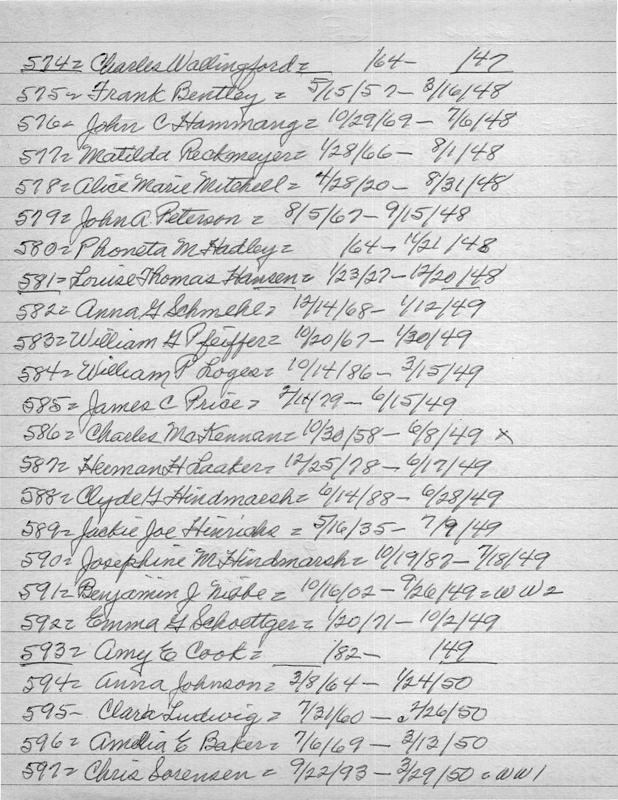 574= Charles Wallingford= /64- /47
575= Frank Bentley = 5/15/57- 3/16/48
576- John C Hammang= 10/29/69- 7/6/48
577= Matilda Peckmeyer= 1/28/66- 8/1/48
578= Alice Marie Mitchell= 4/28/20- 8/31/48
579= John A. Peterson = 8/5/67- 9/15/48
580= Phoneta M Hadley= /64- 11/21/48
581= Louise Thomas Hansen= 1/23/27-12/20/48
582= Anna G Schmehl= 12/14/68- 1/12/49
583= William G Pfeiffer= 10/20/67- 1/30/49
584= William P Loges= 10/14/86- 3/15/49
585= James C Price= 2/14/79- 6/15/49
586= Charles McKennan= 10/30/58- 6/8/49 x
587= Herman H Laaker= 12/25/78- 6/17/49
588= Clyde G Hindmarsh= 6/14/88- 6/28/49
589= Jackie Joe Hinrichs = 5/16/35- 7/9/49
590= Josephine M Hindmarsh= 10/19/87- 7/18/49
591= Benjamin J = 10/16/02- 9/26/49= WW2
592= Emma G Schoettger= 1/20/71- 10/2/49
593= Amy E Cook= /82- /49
594= Anna Johnson= 3/8/64- 1/24/50
595- Clara Ludwig = 7/31/60- 2/26/50
596= Amelia E Baker= 7/6/69- 3/13/50
597= Chris Sorensen = 9/22/93- 3/29/50= WW1